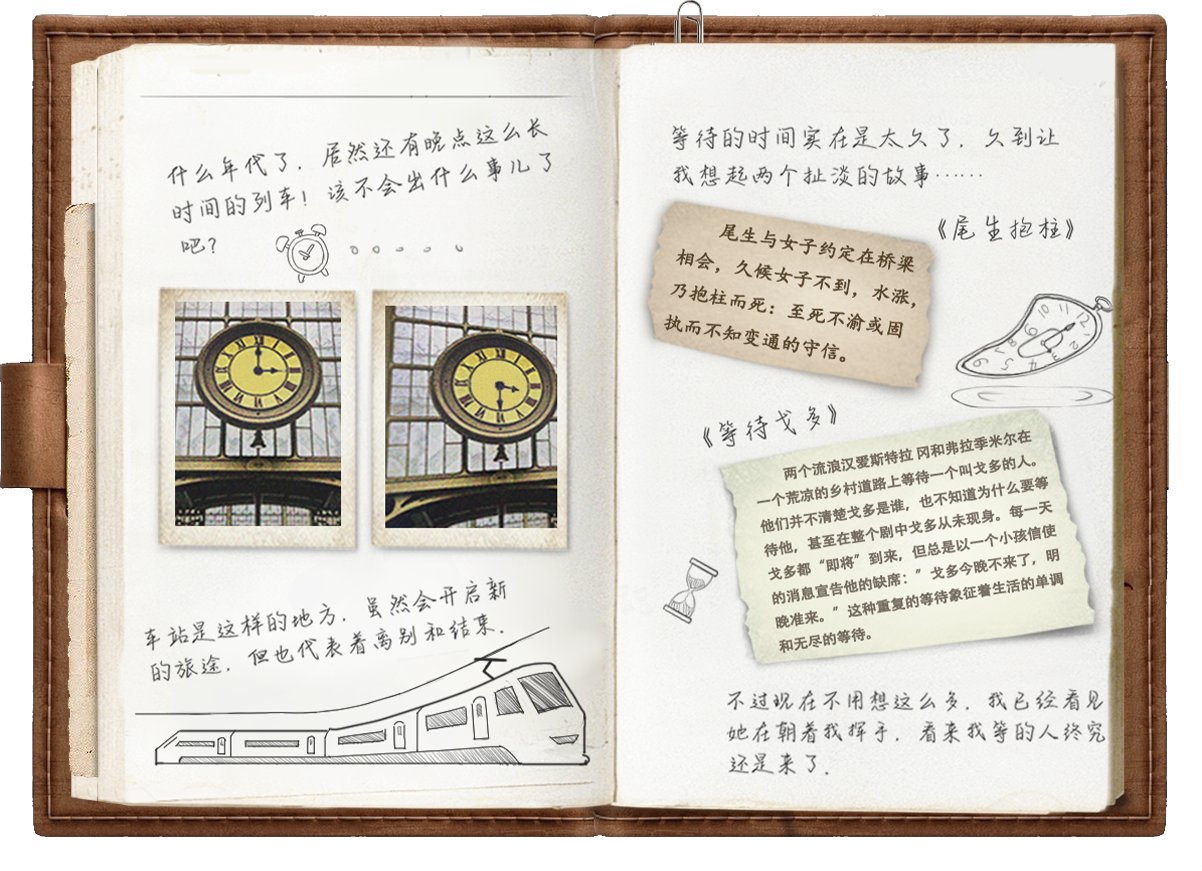 什么年代了，居然还有晚点这么长
时间的列车！该不会出什么事儿了
吧？
车站是这样的地方，虽然会开启新
的旅途，但也代表着离别和结束．
等待的时间实在是太久了，久到让
我想起两个扯淡的故事……
《尾生抱柱》
尾生与女子约定在桥梁
相会，久候女子不到，水涨，
乃抱柱而死；至死不渝或固
执而不知变通的守信。
《等待戈多》
两个流浪汉爱斯特拉 冈和弗拉季米尔在
一个荒凉的乡村道路上等待一个叫戈多的人。
他们并不清楚戈多是谁，也不知道为什么要等
待他，甚至在整个剧中戈多从未现身。每一天
戈多都“即将”到来，但总是以一个小孩信使
的消息宣告他的缺席：”戈多今晚不来了，明
晚准来。”这种重复的等待象征着生活的单调
和无尽的等待。
不过现在不用想这么多，我已经看见
她在朝着我挥手，看来我等的人终究
还是来了．